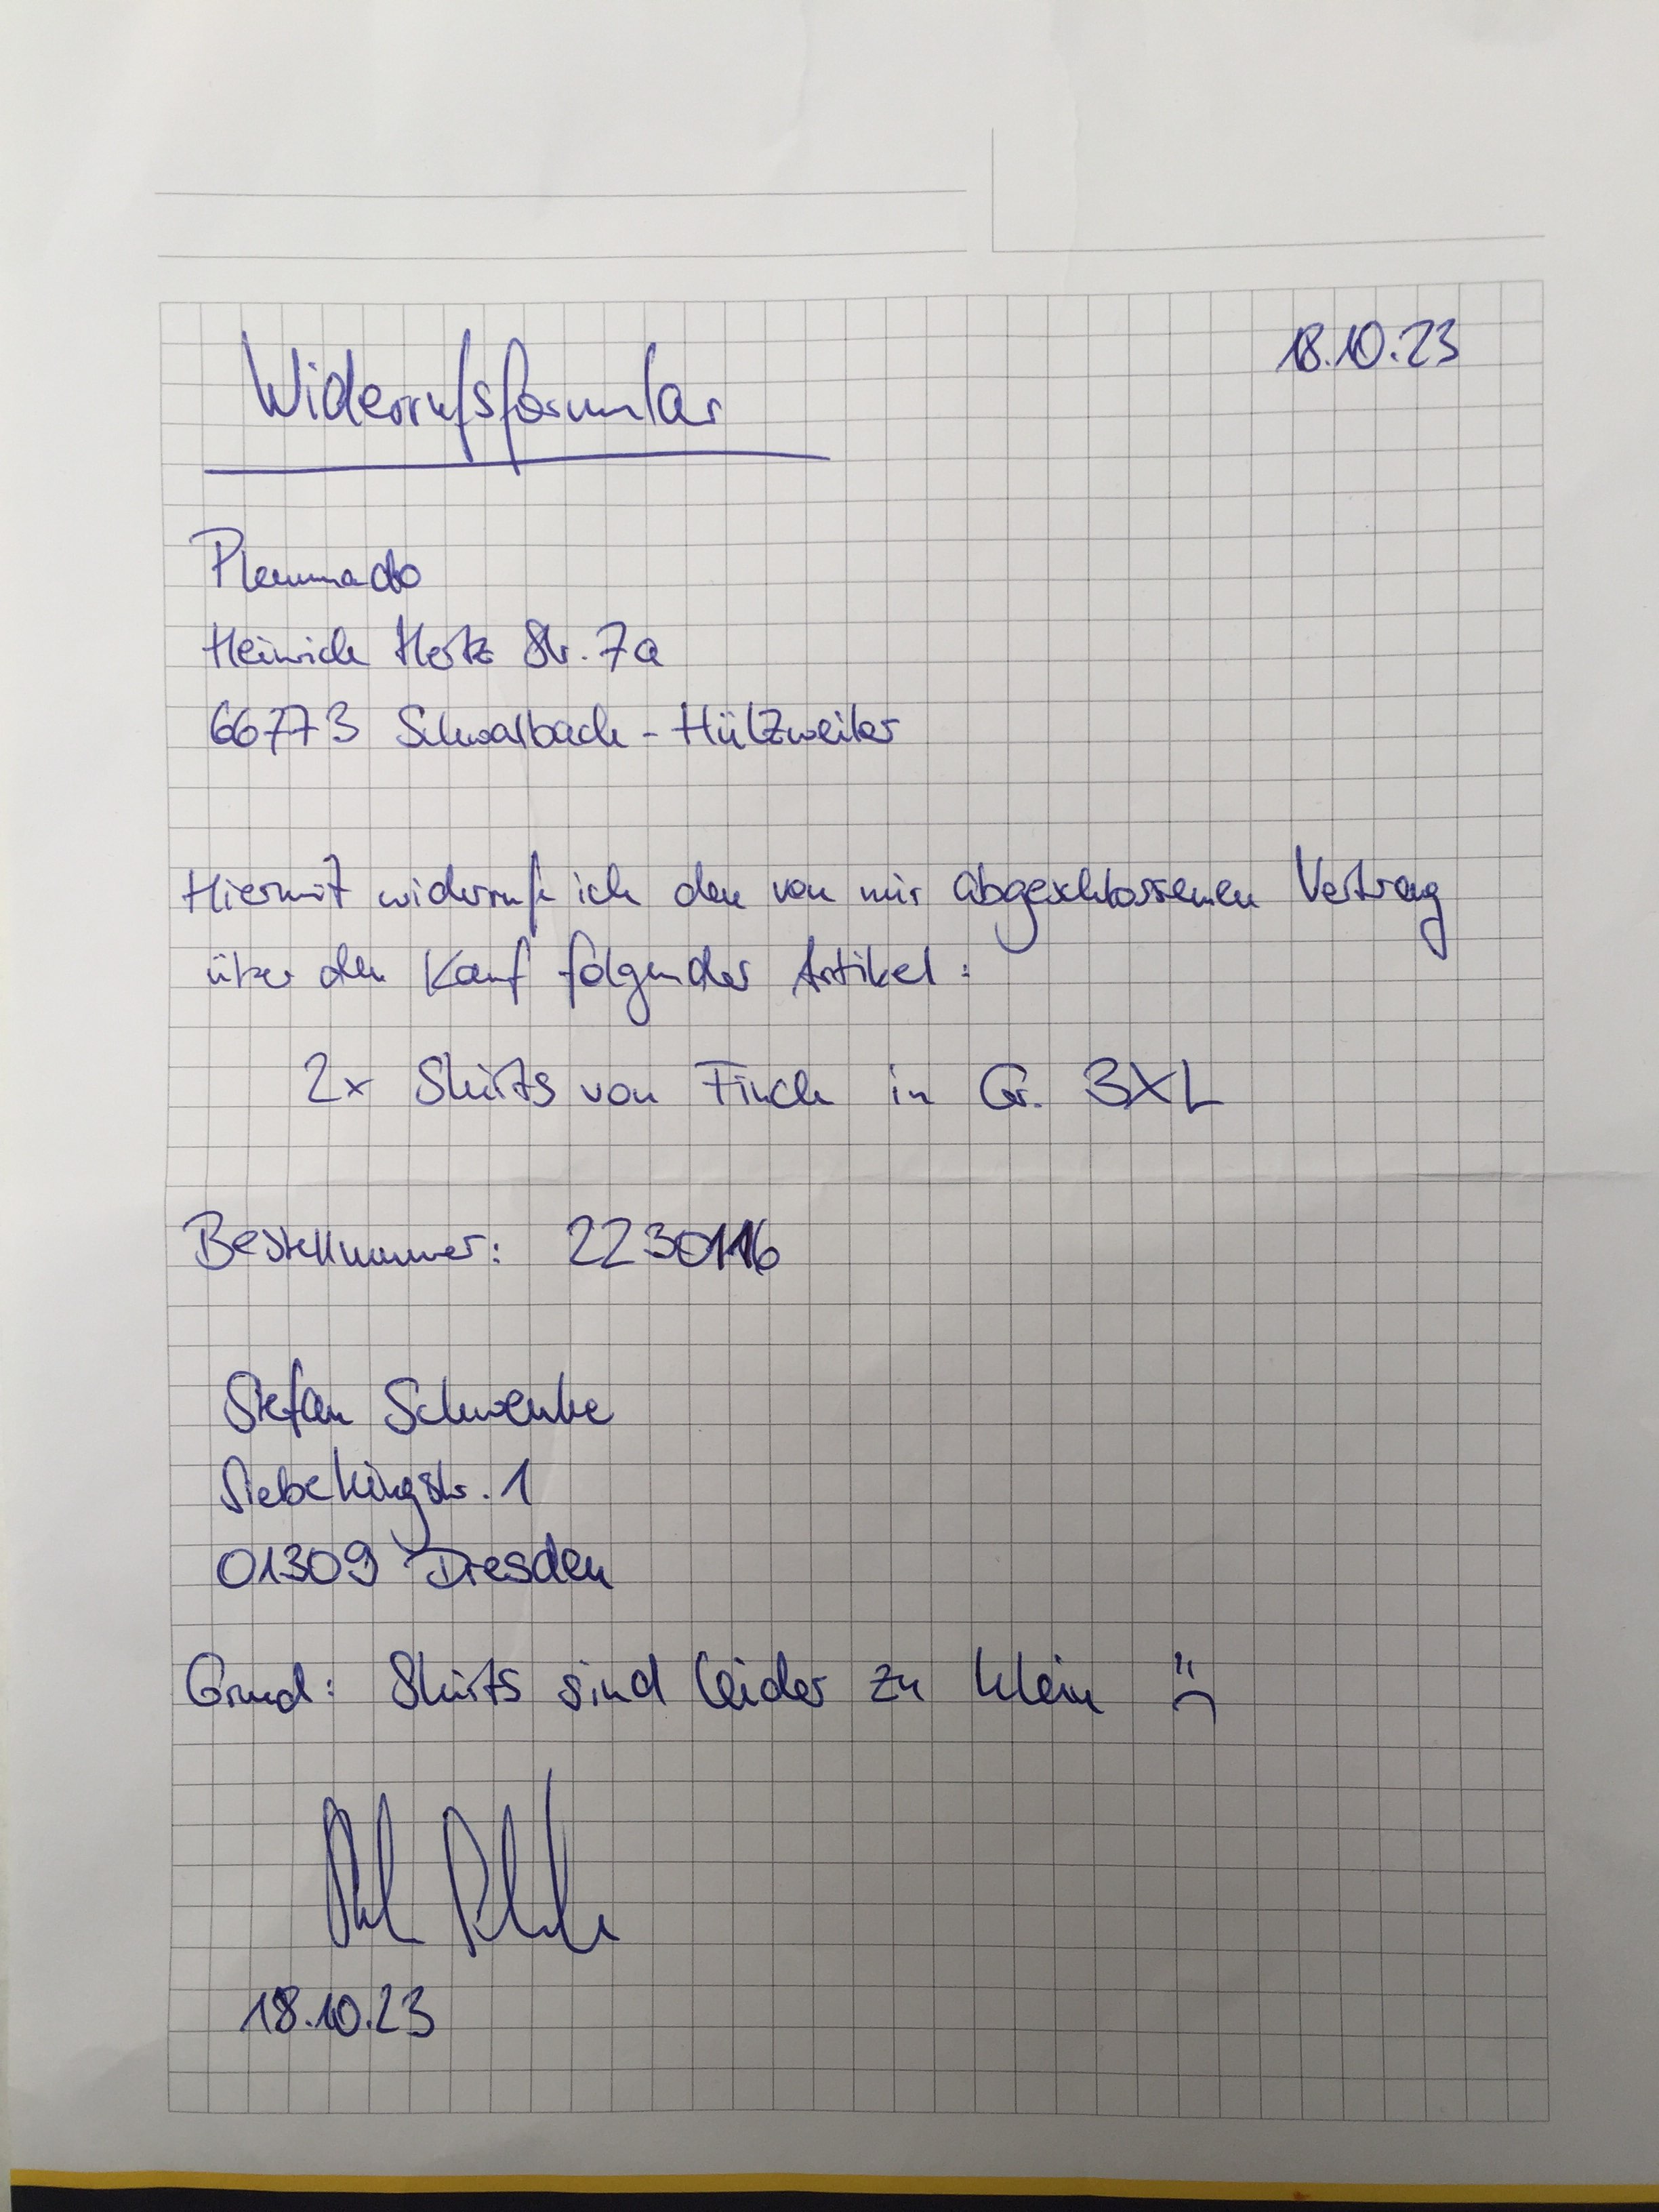 18.10.23
Widerrufsformular
Plemmado
Heinrich Hertz Str. 7a
66773 Schwalbach - Hülzweiler
Hiermit widerrufe ich den von mir abgeschlossenen Vertrag
über den Kauf folgender Artikel:
2x Shirts von Finch in Gr. 3XL
Bestellnummer: 2230116
Stefan Schwenke
Siebekingstr. 1
01309 Dresden
Grund: Shirts sind leider zu klein :(
18.10.23